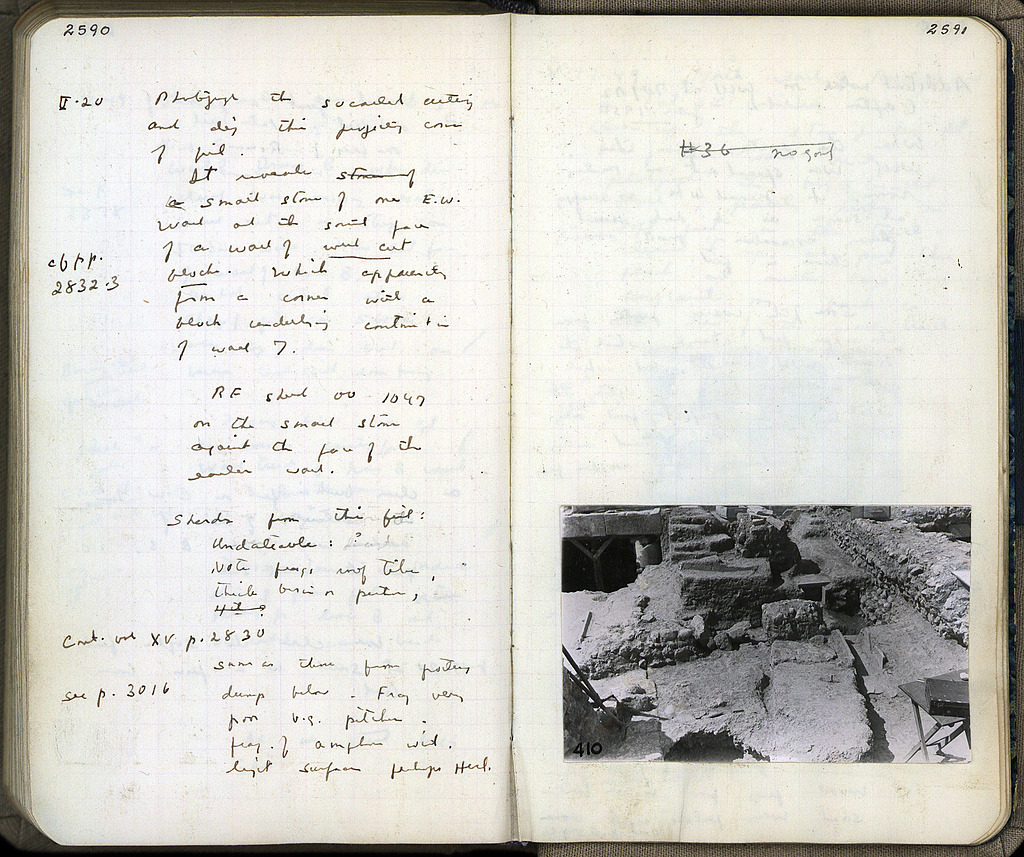 2590
V·20 Photograph the socalled cutting
and dig this projecting corner
of fill.
It reveals
a small stone of one E.W.
wall at the south face
of a wall of well cut
cf pp.
2832·3
blocks. Which apparently
form a corner with a
block underlying
of wall 7.
RF sherd 00 1047
on the small stone
against the face of the
earlier wall.
Sherds from this fill:
Undateable:
Note frags roof tile,
thick basin or
Cont. vol XV p. 2830
same as those from pottery
see p. 3016
dump below. Frag very
poor b.g. pitcher.
frag. of amphora with
light surface perhaps Hell.
2591
#36 no good
410